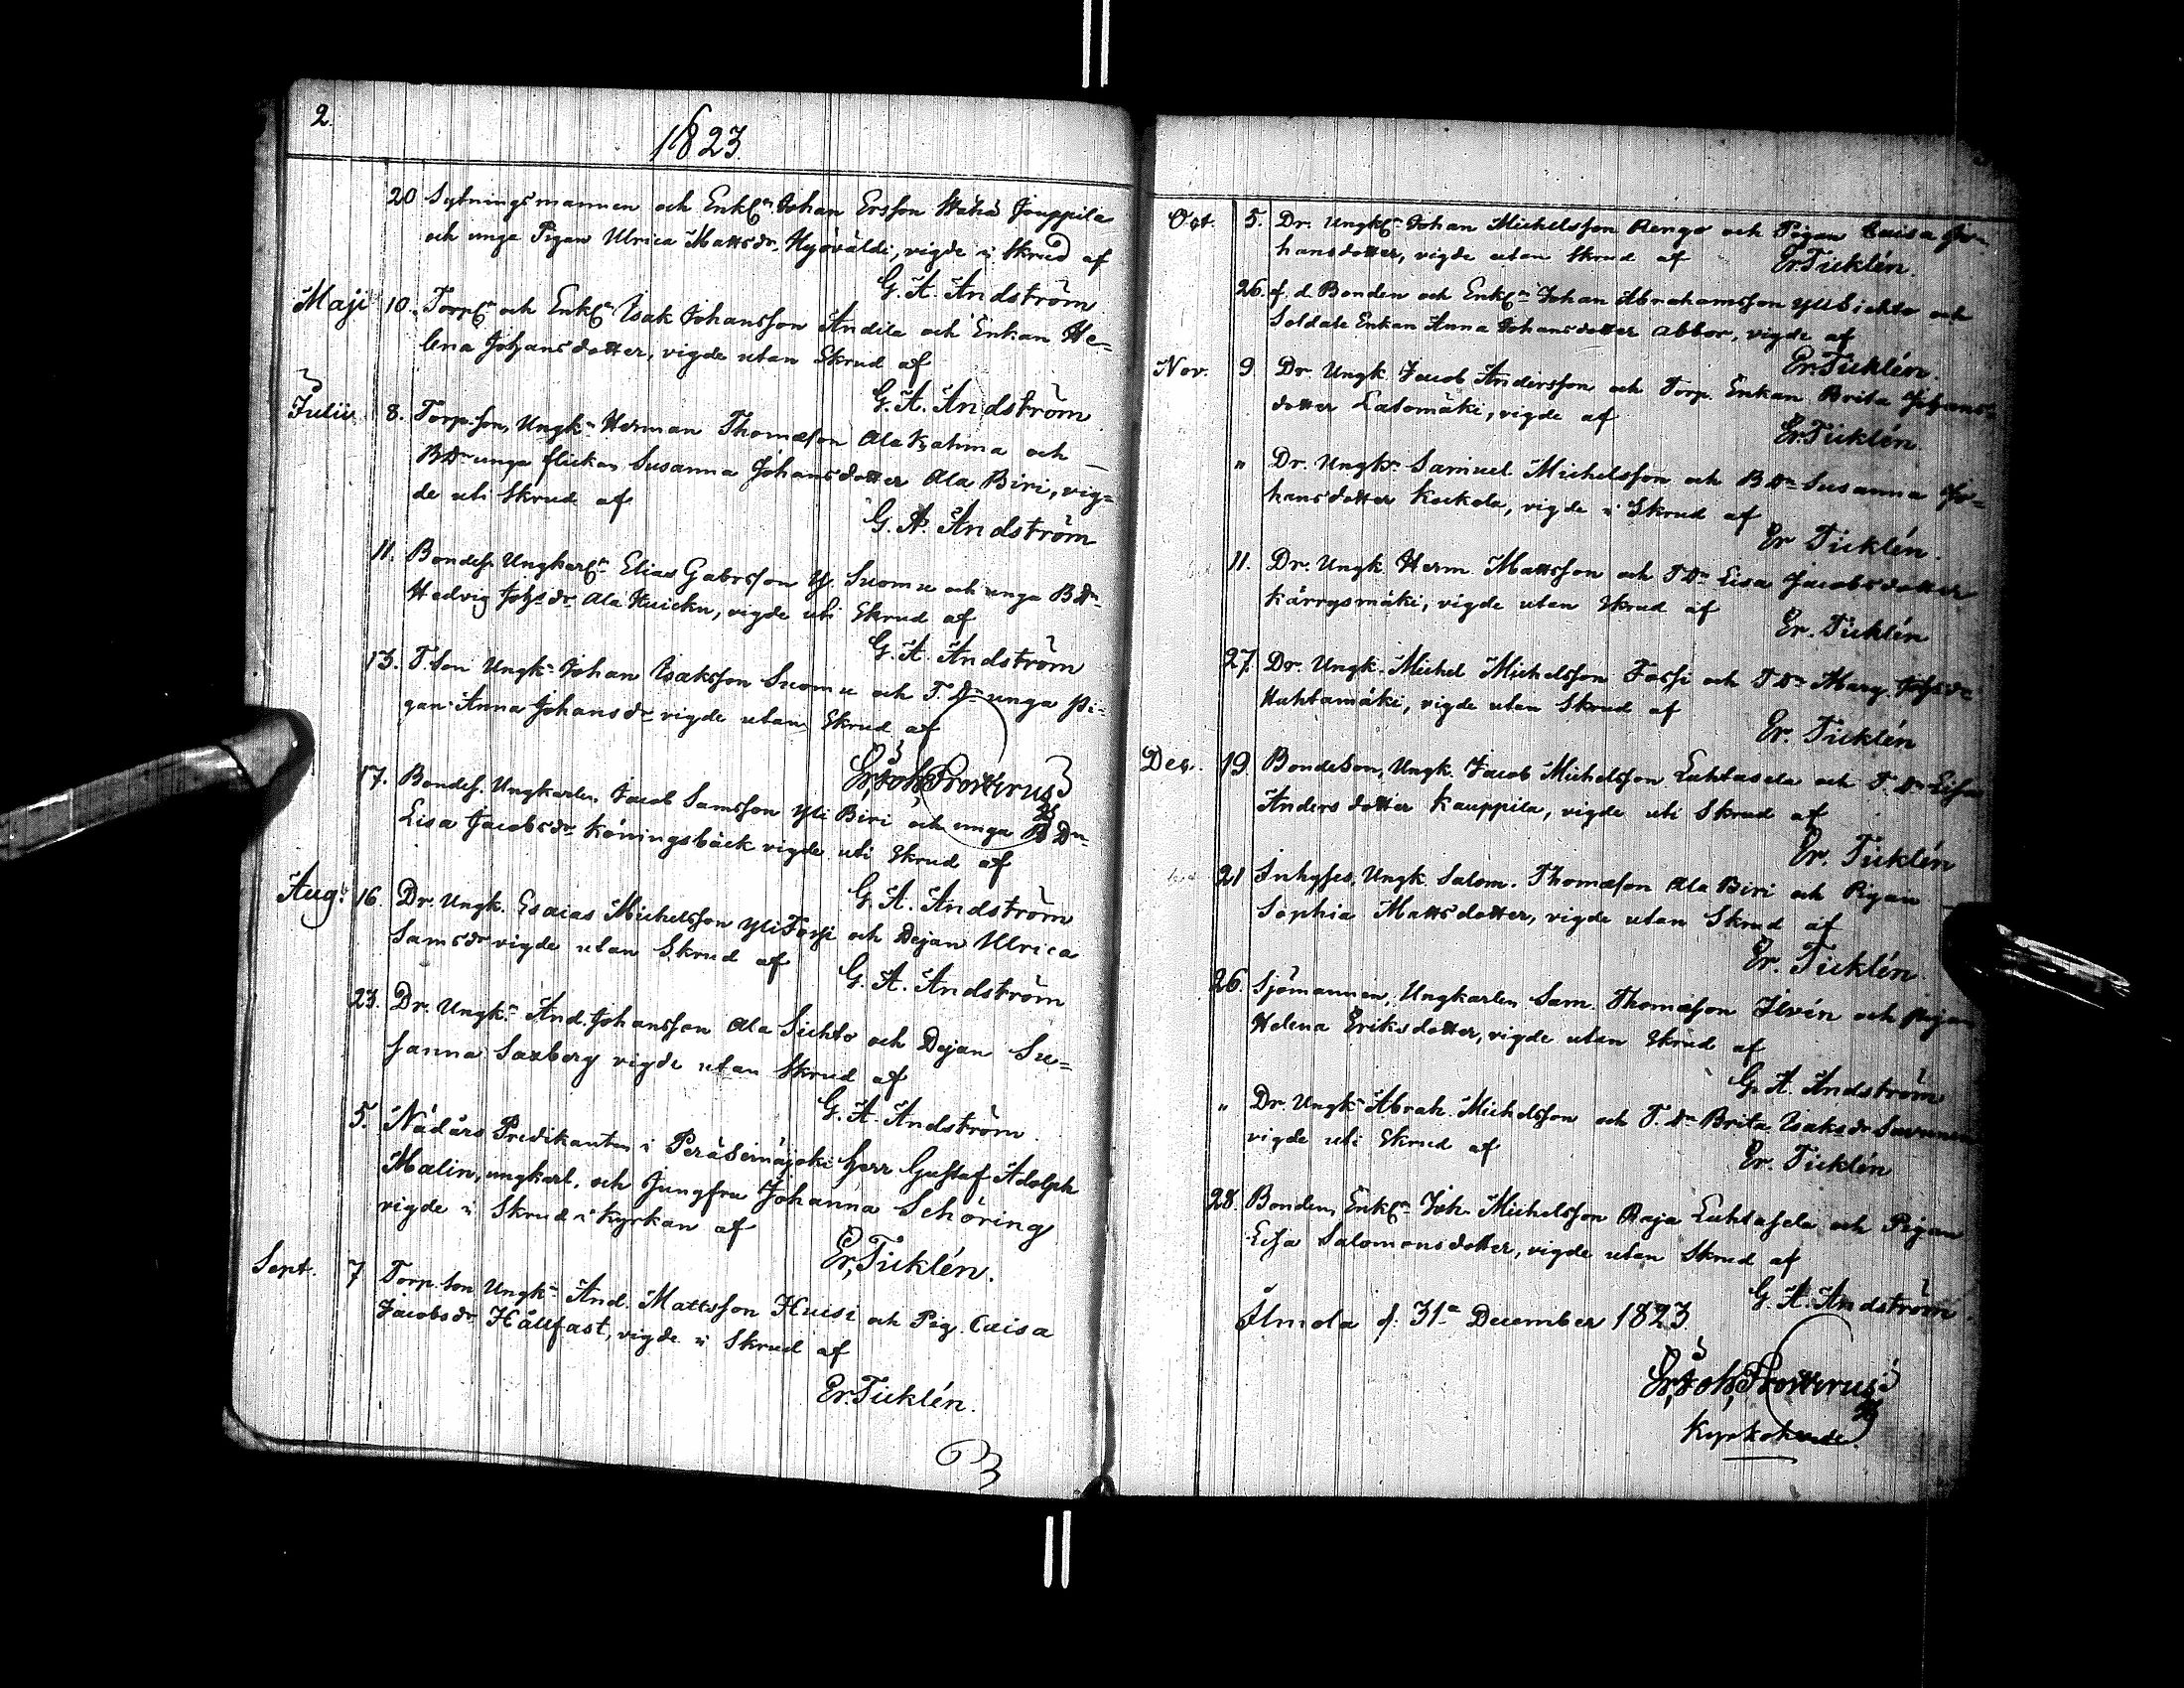 2.
1823.
20 Sytningsmannen och Enkl:n Johan Ersson Wähä Jouppila
och unga Pigan Ulrica Mattsdr. Hyövälti, vigde i Skrud af
G. A. Andström
Maji 10. Torp: och Enkl:n Isak Johansson Andila och Enkan He=
lena Johansdotter, vigde utan Skrud af
G. A. Andström
Julii 8. Torp.son, Ungk:n Herman Thomasson Ala Kahma och
BDr unga flickan Susanna Johansdotter Ala Biri, vig=
de uti Skrud af
G. A. Andström
11. Bondes. Ungkarl:n Elias Gabrsson Y. Suomu och unga BDr
Hedvig Johsdr Ala Huicku, vigde uti Skrud af
G. A. Andström
13. T.Son Ungk:n Johan Isaksson Suomu och T. Dr unga Pi=
gan Anna Johansdr vigde utan Skrud af
Er, Joh, Frosterus
17. Bondes. Ungkarlen Jacob Samsson Yli Biri och unga B Dn
Lisa Jacobsdr Köningsbäck vigde uti Skrud af
G. A. Andström
Aug: 16. Dr. Ungk. Esaias Michelsson Yli Fossi och Dejan Ulrica
Samsdr vigde utan Skrud af
G. A. Andström
23. Dr. Ungk:n And. Johansson Ala Sichto och Dejan Su=
sanna Saxberg vigde utan Skrud af
G. A. Andström
5. Nådårs Predikanten i Peräseinäjoki Herr Gustaf Adolph
Malin, ungkarl. och Jungfru Johanna Schöring
vigde i Skrud i Kyrkan af
Er, Ticklén.
Sept. 7 Torp. Son Ungk:n And. Mattsson Huisi och Pig. Caisa
Jacobsdr Hållfast, vigde i Skrud af
Er. Ticklén.
Oct. 5. Dr. Ungk:n Johan Michelsson Rengo och Pigan Caisa Jo=
hansdotter, vigde utan Skrud af Er. Ticklén.
26. f. d. Bonden och Enkl:n Johan Abrahamsson Yli Sichto och
Soldate Enkan Anna Johansdotter Abbor, vigde af
Er. Ticklén.
Nov. 9 Dr. Ungk. Jacob Andersson och Torp. Enkan Brita Johans=
dotter Latomäki, vigde af
Er. Ticklén.
" Dr. Ungk:n Samuel Michelsson och B Dr Susanna Jo=
hansdotter Kockola, vigde i Skrud af
Er Ticklén.
11. Dr. Ungk. Herm. Mattsson och T Dr Lisa Jacobsdotter
Kärrysmäki, vigde utan Skrud af
Er. Ticklén
27. Dr. Ungk. Michel Michelsson Fossi och T Dr Marg. Johsdr
Huhtamäki, vigde utan Skrud af
Er. Ticklén
Dec. 19. Bondeson, Ungk. Jacob Michelsson Luhtasela och T. Dr Lisa
Andersdotter Kauppila, vigde uti Skrud af
Er. Ticklén
21 Inhyses, Ungk Salom. Thomasson Ala Biri och Pigan
Sophia Mattsdotter, vigde utan Skrud af
Er. Ticklén.
26. Sjömannen, Ungkarlen Sam. Thomasson Ilvén och pigan
Helena Eriksdotter, vigde utan Skrud af
G. A. Andström
" Dr. Ungk:n Abrah. Michelsson och T. Dr Brita Isaksdr
vigde uti Skrud af
Er. Ticklén
28. Bonden, Enkl:n Joh. Michelsson Raja Luhtasela och Pigan
Lisa Salomonsdotter, vigde utan Skrud af
G. A. Andström.
Ilmola d. 31:a December 1823.
Er, Joh, Frosterus
Kyrkoherde.